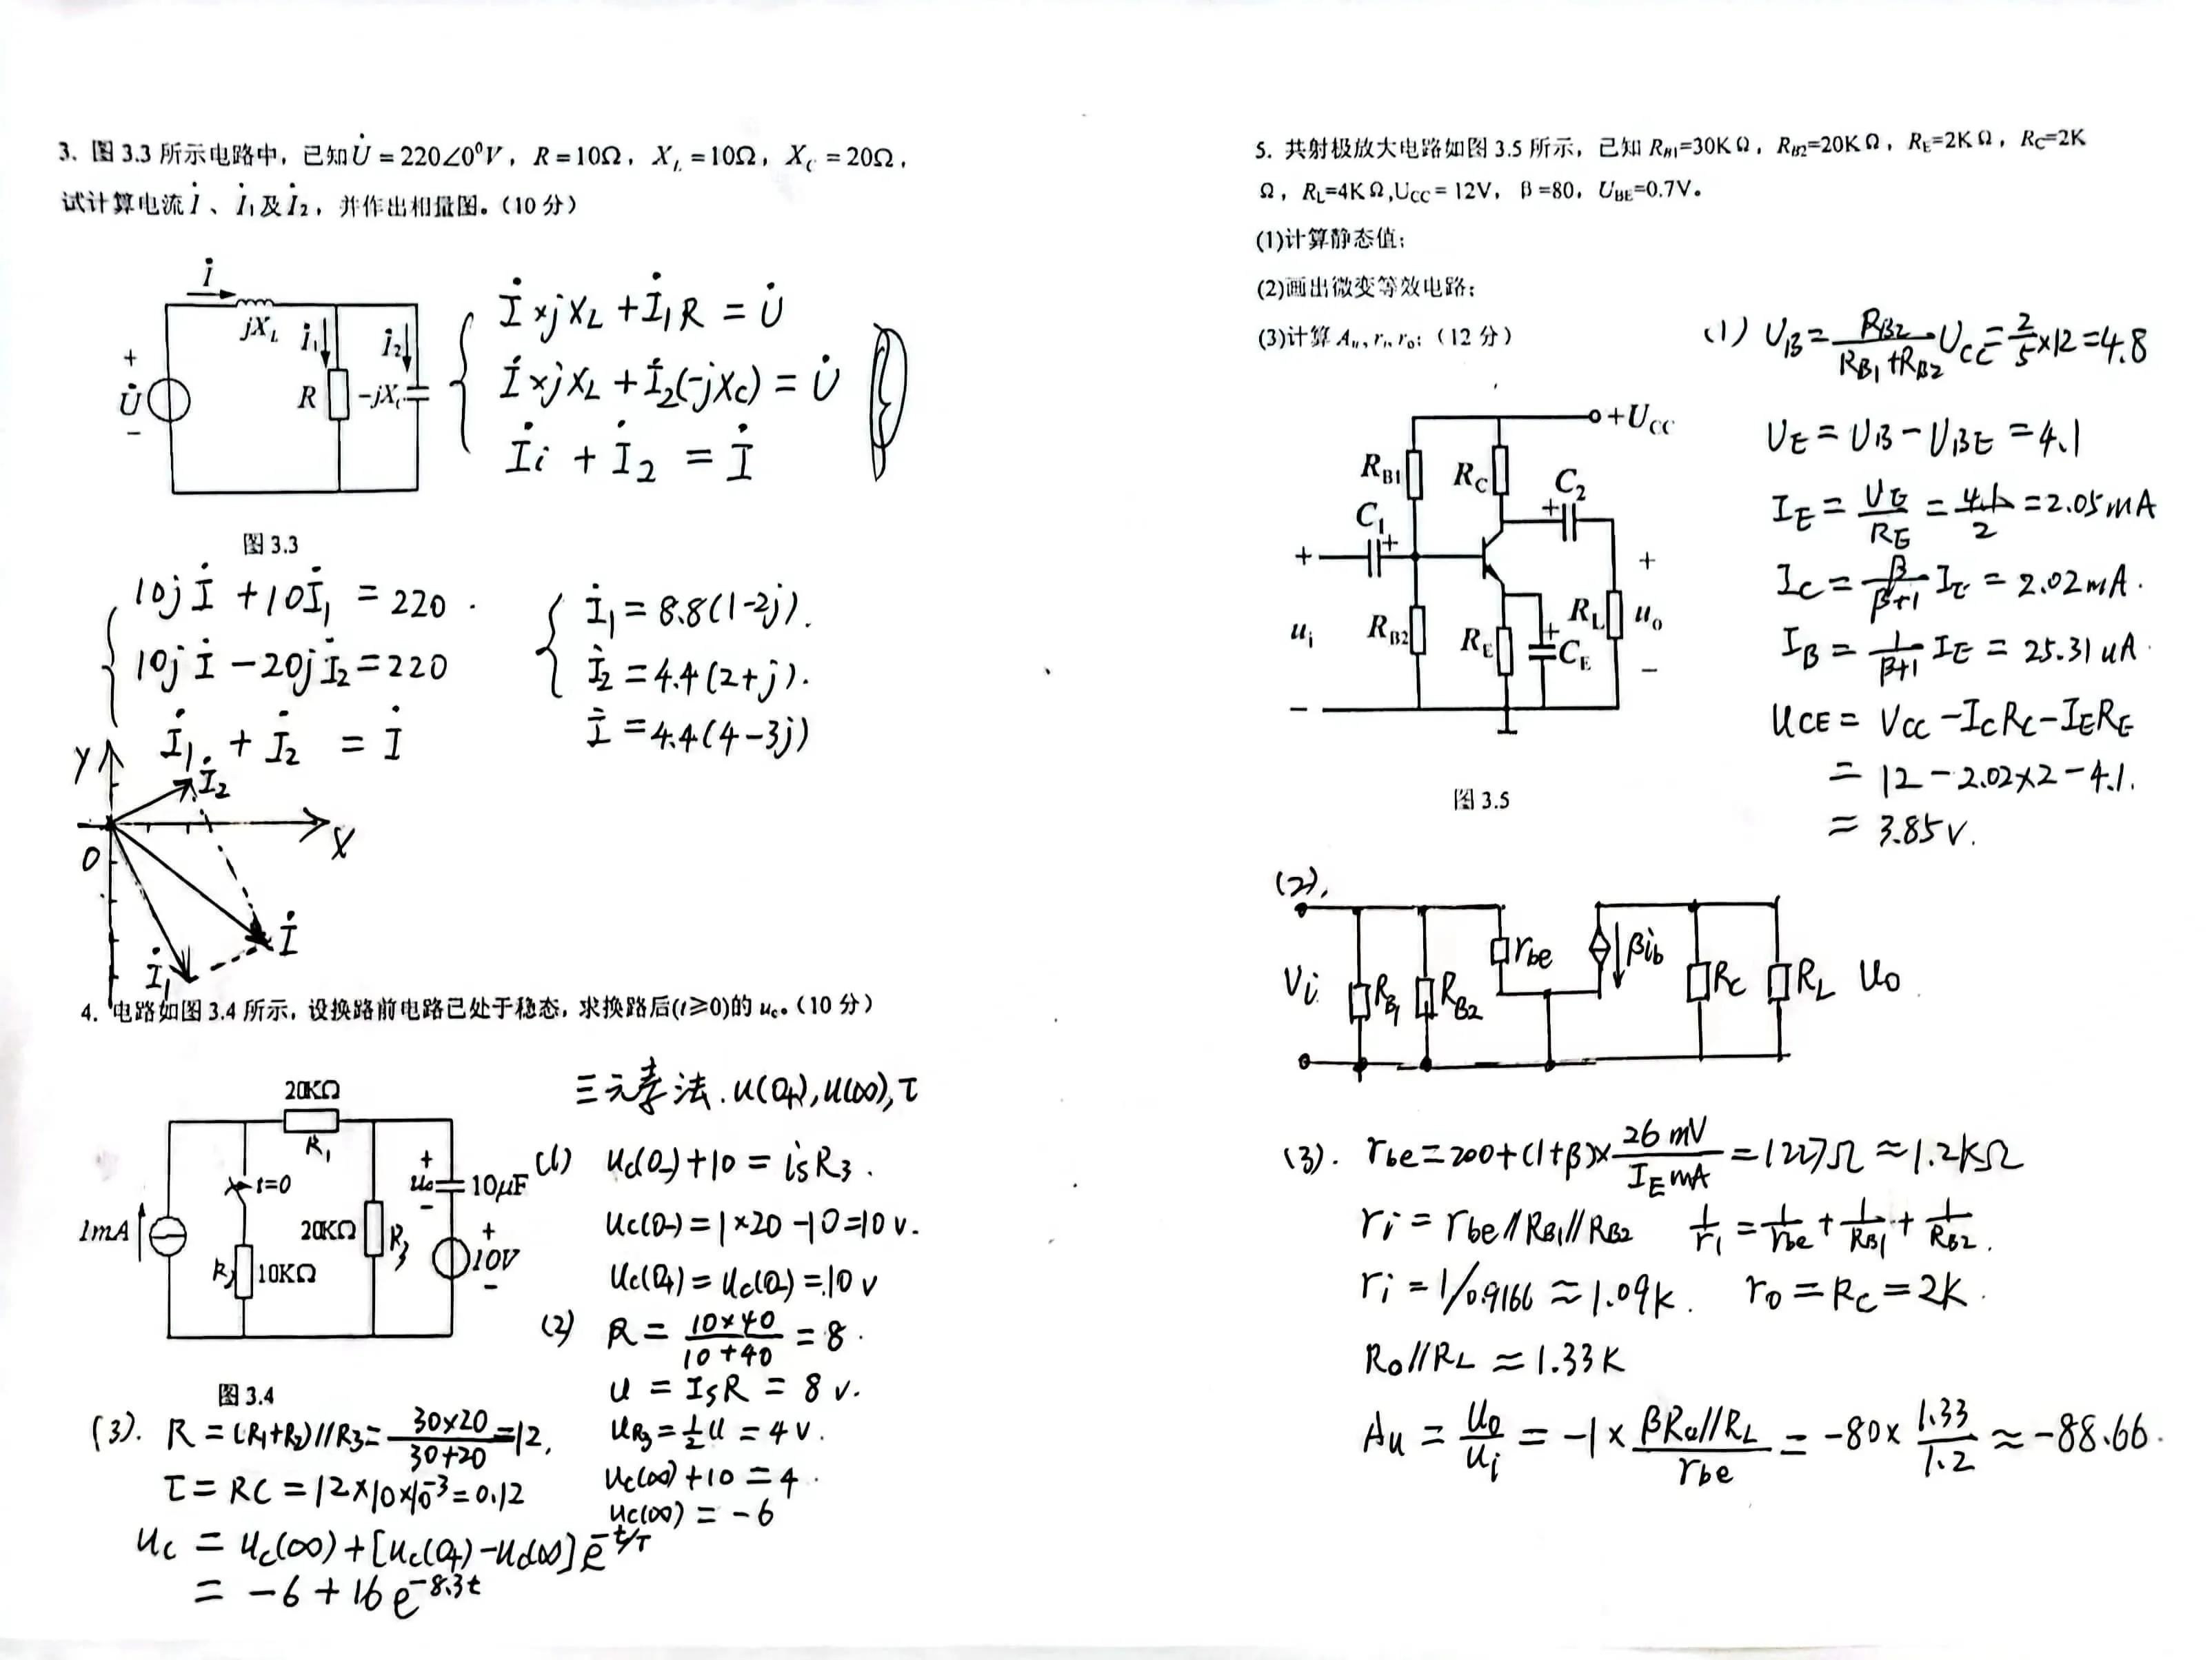 3、图 3.3 所示电路中，已知 U̇ = 220∠0⁰V，R = 10Ω，X_L = 10Ω，X_C = 20Ω，
试计算电流 İ、İ₁及 İ₂，并作出相量图。（10 分）
İ
jX_L
İ₁
İ₂
+
U̇
−
R
-jX_C
图 3.3
İ×jX_L + İ₁R = U̇
İ×jX_L + İ₂(-jX_C) = U̇
İi + İ₂ = İ
10jİ + 10İ₁ = 220
10jİ − 20jİ₂ = 220
İ₁ + İ₂ = İ
İ₁ = 8.8(1-2j).
İ₂ = 4.4(2+j).
İ = 4.4(4-3j)
Y
İ₂
O
X
İ
İ₁
4. 电路如图 3.4 所示，设换路前电路已处于稳态，求换路后(t≥0)的 u_c。（10 分）
20KΩ
R₁
t=0
1mA
R₂
10KΩ
20KΩ
R₃
+
u_c
−
10μF
+
10V
−
图 3.4
三元素法. u(0₊), u(∞), τ
(1) u_c(0₋)+10 = i_sR₃.
u_c(0₋) = 1×20 −10 = 10 v.
u_c(0₊) = u_c(0₋) = 10 v
(2) R = 10×40 / 10+40 = 8.
u = I_sR = 8 v.
u_R₃ = ½u = 4 v.
u_c(∞)+10 = 4.
u_c(∞) = −6
(3). R = (R₁+R₂)//R₃ = 30×20 / 30+20 = 12,
τ = RC = 12×10×10⁻³ = 0.12
u_c = u_c(∞) + [u_c(0₊) − u_c(∞)] e^(−t/τ)
= −6 + 16 e^(−8.3t)
5. 共射极放大电路如图 3.5 所示，已知 R_B1=30KΩ，R_B2=20KΩ，R_E=2KΩ，R_C=2K
Ω，R_L=4KΩ,U_CC = 12V，β=80，U_BE=0.7V。
(1)计算静态值；
(2)画出微变等效电路；
(3)计算 A_u, r_i, r_o；（12 分）
+U_CC
R_B1
R_C
C₂
+
C₁
+
+
u_i
−
R_B2
R_E
+
C_E
R_L
+
u_o
−
图 3.5
(1) U_B = R_B2 / R_B1+R_B2 · U_CC = 2/5 ×12 = 4.8
U_E = U_B − U_BE = 4.1
I_E = U_E / R_E = 4.1 / 2 = 2.05 mA
I_C = β / β+1 I_E = 2.02 mA.
I_B = 1 / β+1 I_E = 25.31 uA.
U_CE = V_CC − I_CR_C − I_ER_E
= 12 − 2.02×2 − 4.1.
= 3.85 V.
(2),
V_i
R_B1
R_B2
r_be
βi_b
R_C
R_L
u_o
(3). r_be = 200+(1+β)× 26 mV / I_E mA = 1227Ω ≈ 1.2kΩ
r_i = r_be // R_B1 // R_B2 1/r_i = 1/r_be + 1/R_B1 + 1/R_B2.
r_i = 1/0.9166 ≈ 1.09k. r_o = R_C = 2K.
R_o//R_L ≈ 1.33K
A_u = u_o / u_i = −1 × βR_c//R_L / r_be = −80× 1.33 / 1.2 ≈ −88.66.